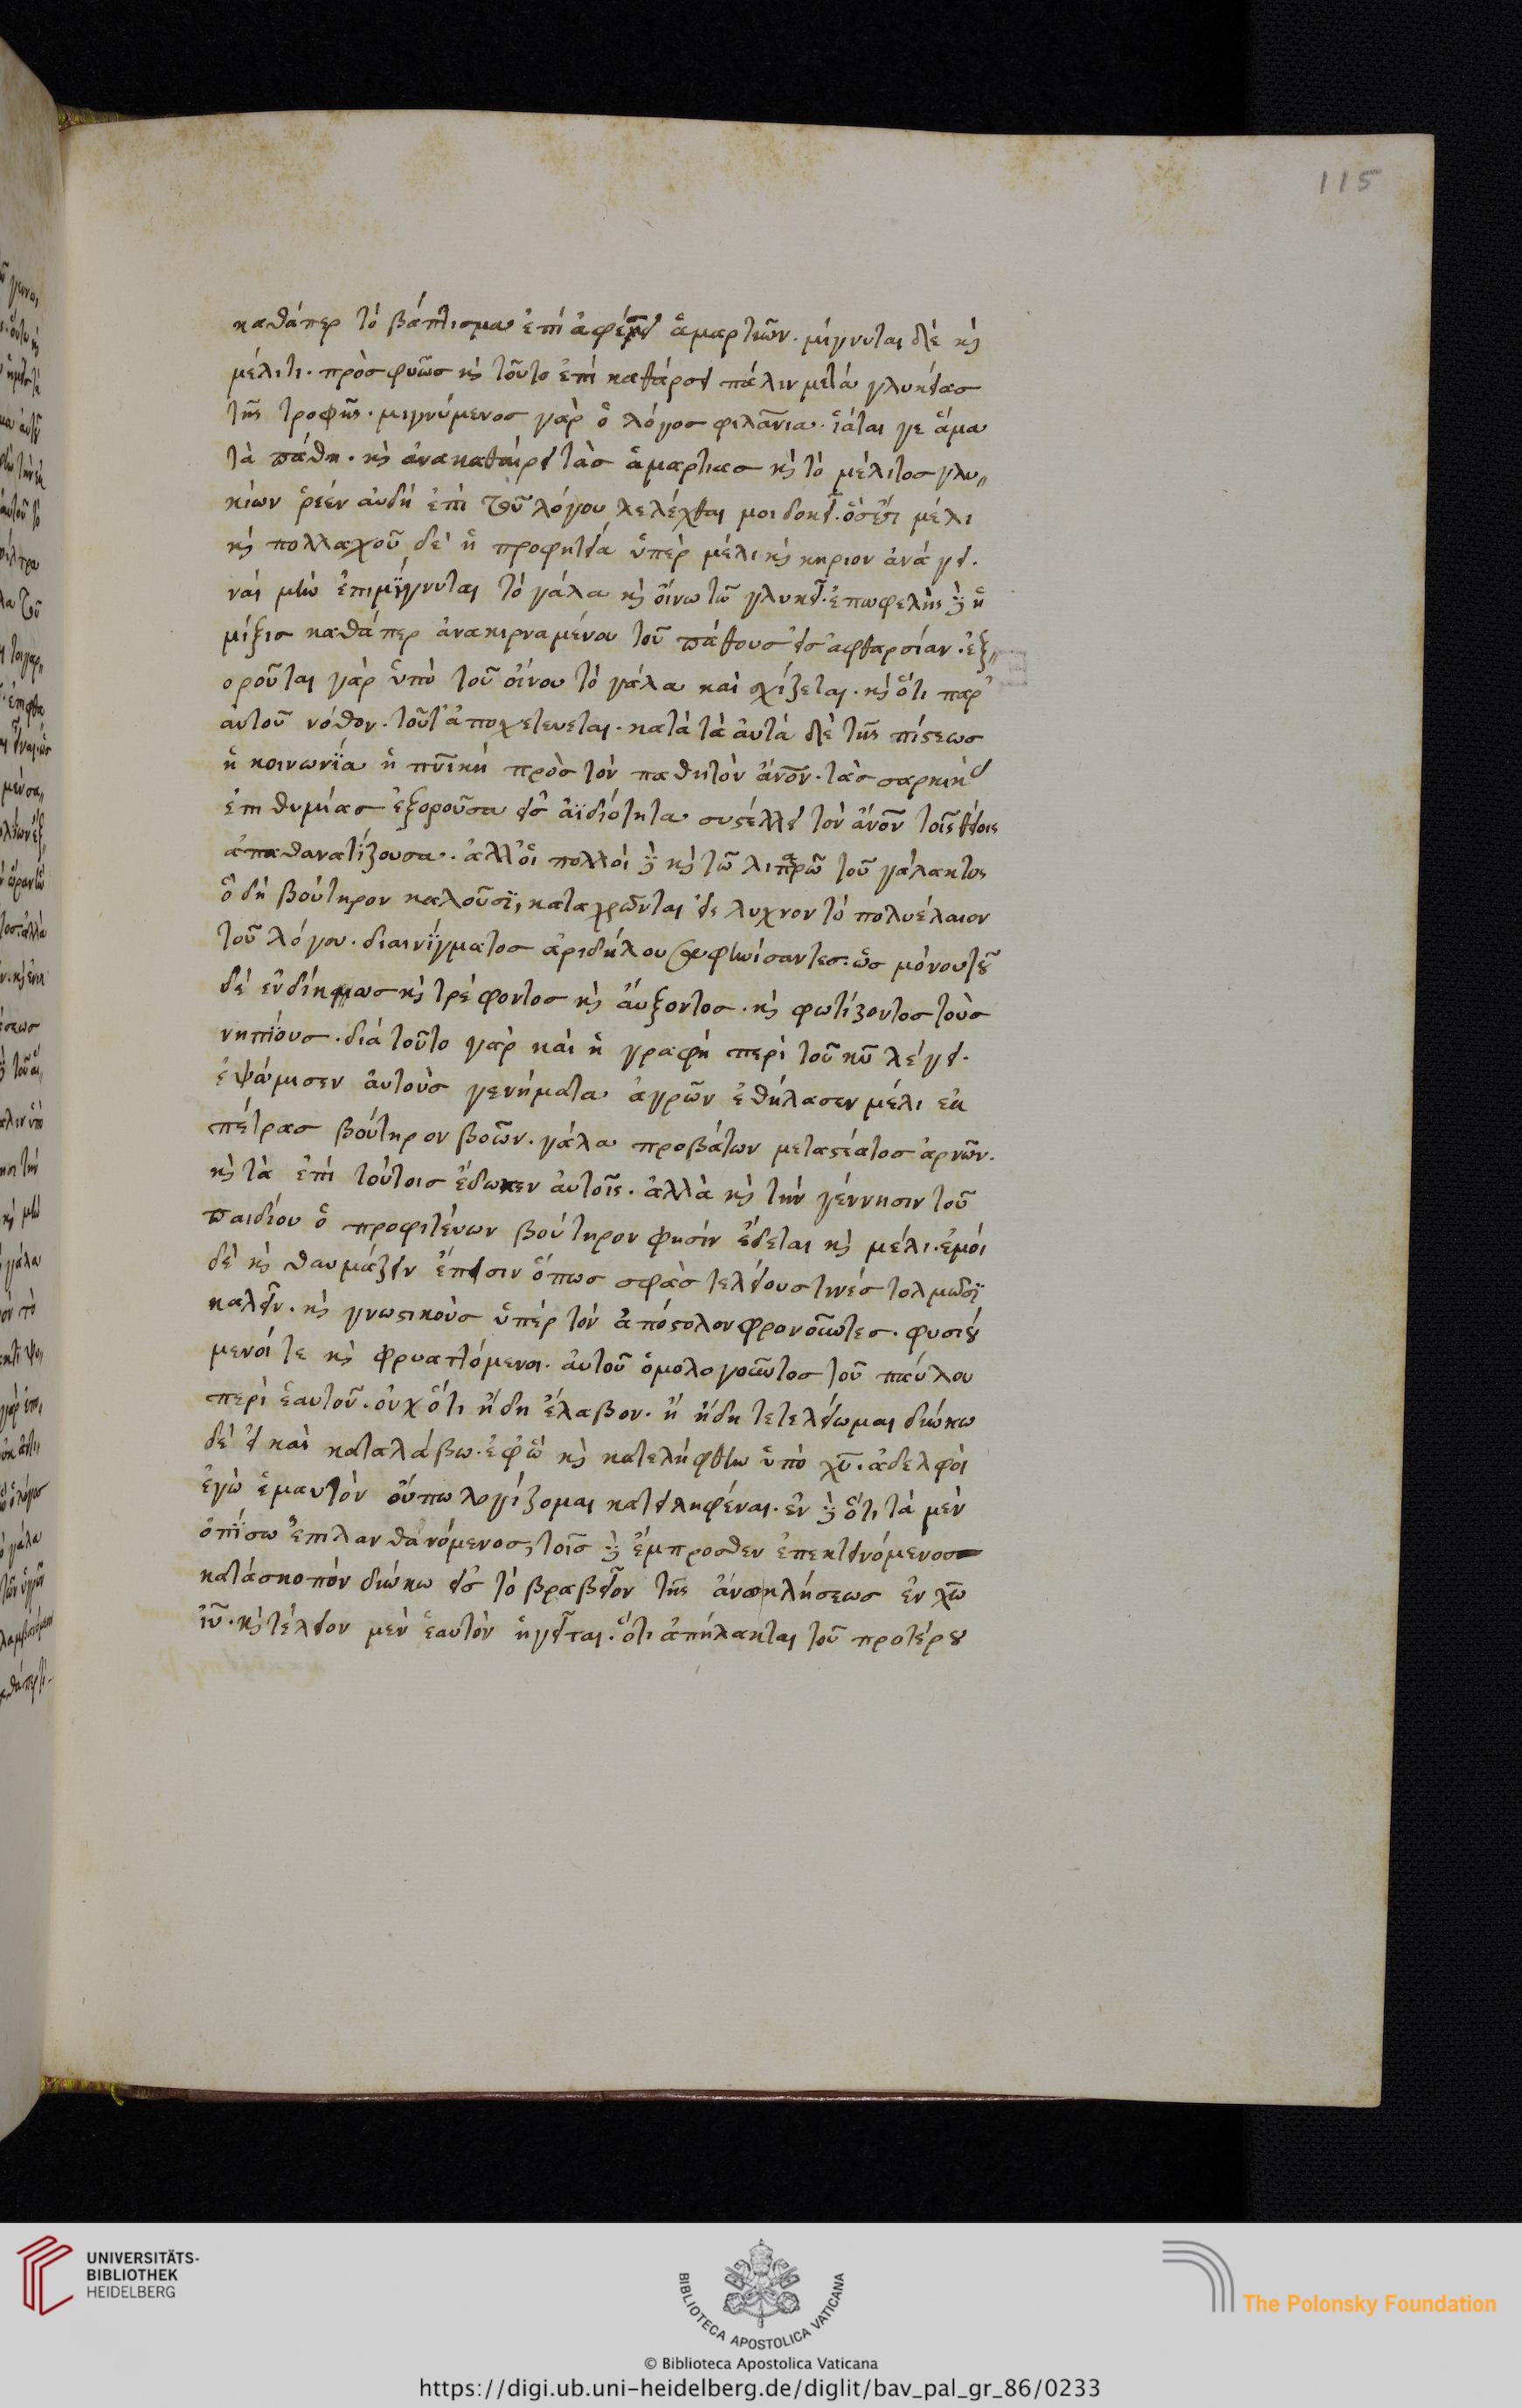 115
καθάπερ τὸ βάπτισμα ἐπὶ ἀφέσει ἁμαρτιῶν. μίγνυται δὲ κὶ
μέλιτι. πρὸσφυῶσ κὶ τοῦτο ἐπὶ καθάρσει πάλιν μετὰ γλυκείασ
τῆς τροφῆς. μιγνύμενοσ γὰρ ὁ λόγοσ φιλανια. ἰᾶται γε ἅμα
τὰ πάθη. κὶ ἀνακαθαίρει τὰσ ἁμαρτιασ κὶ τὸ μέλιτοσ γλυ〃
κίων ῥεέν αυδὴ ἐπὶ τοῦ λόγου λελέχθαι μοι δοκεῖ. ὅσἐστι μέλι
κὶ πολλαχοῦ δὲ ἡ προφητεία ὑπὲρ μέλι κὶ κηριον ἀνάγει.
ναὶ μὴν ἐπιμίγνυται τὸ γάλα κὶ οἴνω τῶ γλυκεῖ. ἐπωφελὴς δὲ ἡ
μίξισ καθάπερ ἀνακιρναμένου τοῦ πάθουσ εἰσ ἀφθαρσίαν. ἐξ〃
οροῦται γὰρ ὑπὸ τοῦ οἴνου τὸ γάλα καὶ σχίζεται. κὶ ὅτι παρ'
αυτοῦ νόθον. τοῦτ' ἀποχετευεται. κατὰ τὰ ἀυτὰ δὲ τῆς πίστεωσ
ἡ κοινωνία ἡ πνϊκὴ πρὸσ τὸν παθητὸν ἄνον. τὰσ σαρκικὰσ
ἐπιθυμίασ ἐξοροῦσα εἰσ ἀϊδιότητα συστέλλει τὸν ἄνον τοῖς θείοις
ἀπαθανατίζουσα. ἀλλ' οἱ πολλοὶ δὲ κὶ τῶ λιπαρῶ τοῦ γάλακτος
ὃ δὴ βούτηρον καλοῦσϊ, καταχρῶνται εἰς λυχνον τὸ πολυέλαιον
τοῦ λόγου. διαινίγματοσ ἀριδήλου σαφηνίσαντεσ. ὡσ μόνου τού
δὲ ἐνδίκως κὶ τρέφοντοσ κὶ ἄυξοντοσ. κὶ φωτίζοντοσ τοὺσ
νηπίουσ. διὰ τοῦτο γὰρ καὶ ἡ γραφὴ περὶ τοῦ κυ λέγει.
ἐψώμισεν ἀυτοὺσ γενήματα ἀγρῶν ἐθήλασεν μέλι ἐκ
πέτρασ βούτηρον βοῶν. γάλα προβάτων μεταστέατοσ ἀρνῶν.
κὶ τὰ ἐπὶ τούτοισ ἔδωκεν ἀυτοῖς. ἀλλὰ κὶ τὴν γέννησιν τοῦ
παιδίου ὁ προφιτέυων βούτηρον φησὶν ἔδεται κὶ μέλι. ἐμοὶ
δὲ κὶ θαυμάζειν ἔπεισιν ὅπωσ σφὰσ τελείουσ τινέσ τολμῶσϊ
καλεῖν. κὶ γνωστικοὺσ ὑπὲρ τὸν ἀπόστολον φρονοῦντεσ. φυσιού
μενοί τε κὶ φρυαττόμενοι. ἀυτοῦ ὁμολογοῦντοσ τοῦ παύλου
περὶ ἑαυτοῦ. ὀυχ ὅτι ἤδη ἔλαβον. ἢ ἤδη τετελείωμαι διώκω
δὲ εἰ καὶ καταλάβω. ἐφῶ κὶ κατελήφθην ὑπὸ χυ. ἀδελφοὶ
ἐγὼ ἐμαυτὸν οὔπω λογίζομαι κατειληφέναι. ἓν δὲ ὅτι τὰ μὲν
ὀπίσω ἐπιλανθανόμενοσ, τοῖσ δὲ ἔμπροσθεν ἐπεκτεινόμενοσ
κατάσκοπὸν διώκω εἰσ τὸ βραβεῖον τῆς ἄνωκλήσεωσ ἐν χω
ιυ. κὶ τέλειον μὲν ἑαυτὸν ἡγεῖται. ὅτι ἀπήλακται τοῦ προτέρου
UNIVERSITÄTS-
BIBLIOTHEK
HEIDELBERG
BIBLIOTECA APOSTOLICA VATICANA
The Polonsky Foundation
© Biblioteca Apostolica Vaticana
https://digi.ub.uni-heidelberg.de/diglit/bav_pal_gr_86/0233